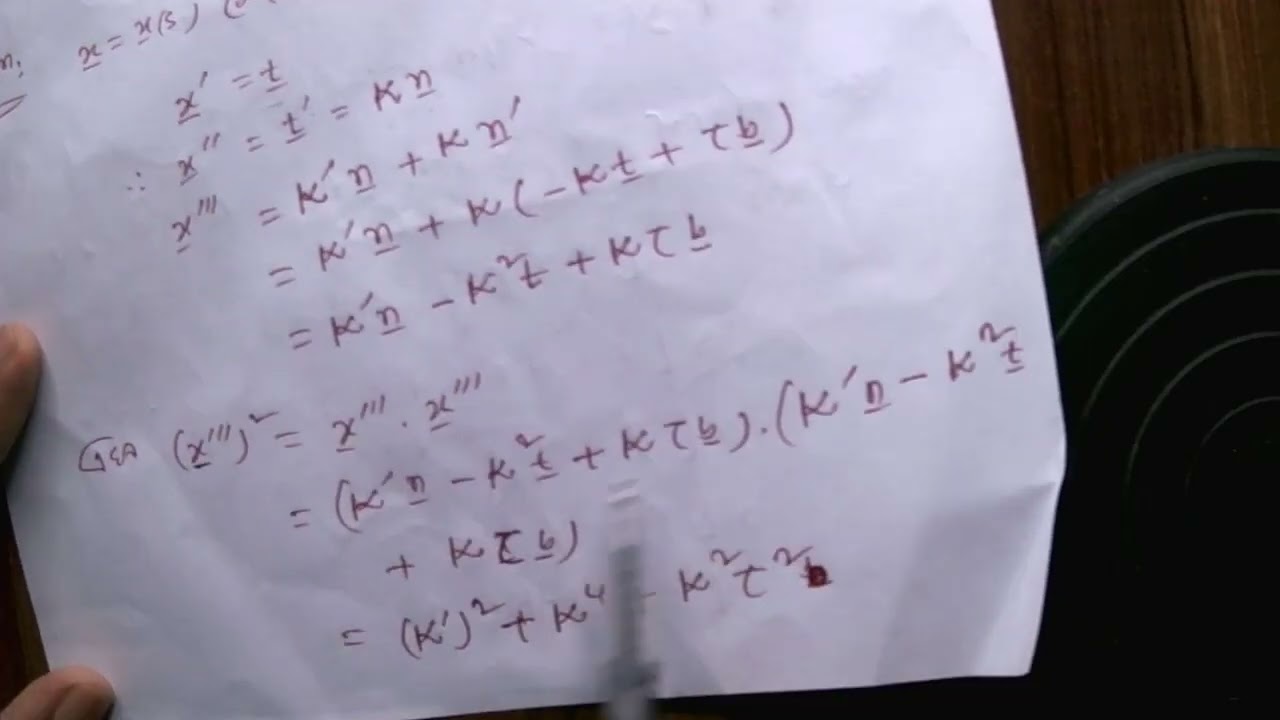 x = x(s)
x' = t
∴ x'' = t' = κ n
x''' = κ' n + κ n'
= κ' n + κ (- κ t + τ b)
= κ' n - κ² t + κ τ b
(x''')² = x''' . x'''
= (κ' n - κ² t + κ τ b) . (κ' n - κ² t
+ κ τ b)
= (κ')² + κ⁴ κ² τ²